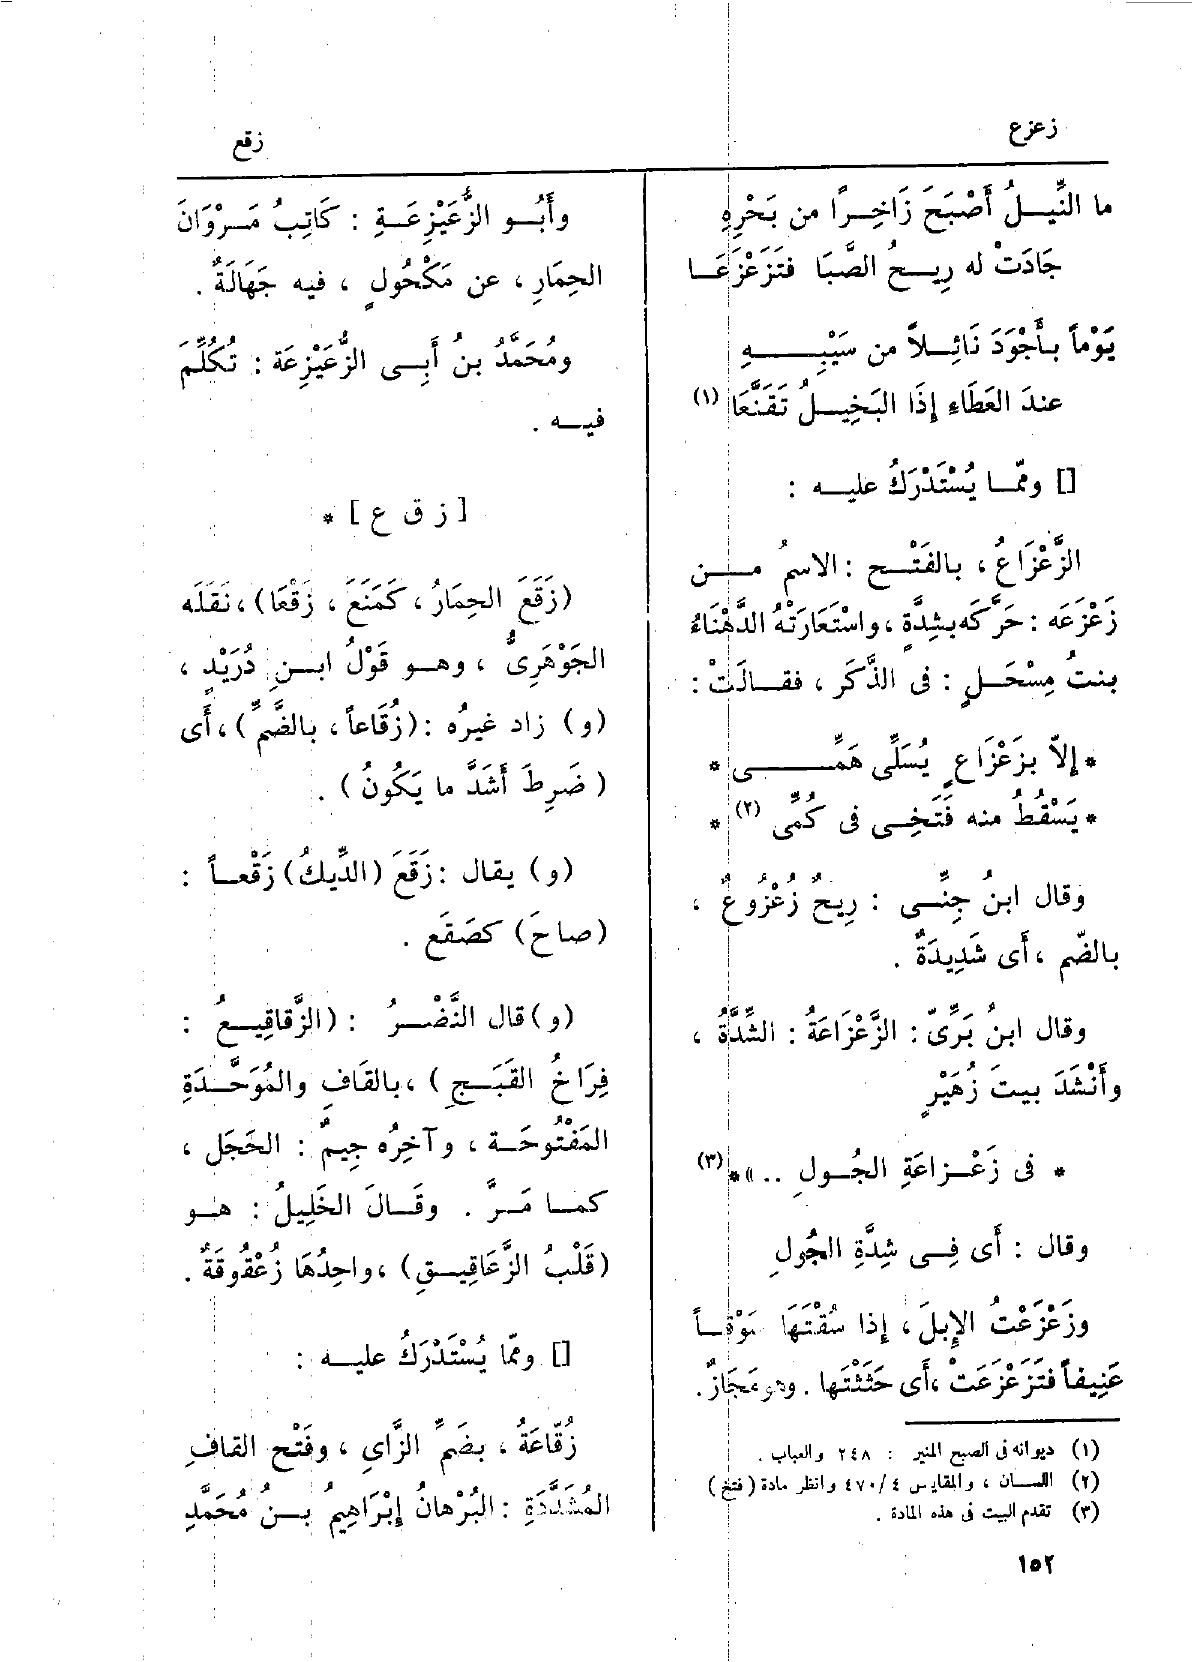 زعزع
زقع
ما النِّيــلُ أَصْبَحَ زَاخِــرًا من بَحْرِهِ
جَادَتْ له رِيــحُ الصَّبَا فتَزَعْزَعَــا
يَوْماً بـأَجْوَدَ نَائِــلاً من سَيْبِــهِ
عندَ العَطَاءِ إِذَا البَخِيــلُ تَقَنَّعَا (١)
[] وممّــا يُسْتَدْرَكُ عليــه :
الزَّعْزَاعُ ، بالفَتْــح : الاسمُ مــن
زَعْزَعَه : حَرَّكَه بشِدَّةٍ ، واسْتَعَارَتْهُ الدَّهْنَاءُ
بنتُ مِسْحَــلٍ : فى الذَّكَر ، فقــالَتْ :
* إِلاّ بزَعْزَاعٍ يُسَلِّى هَمِّــى *
* يَسْقُطُ منه فَتَخِــى فى كُمِّى (٢) *
وقال ابنُ جِنِّــى : رِيحٌ زُعْزُوعٌ ،
بالضّم ، أَى شَدِيدَةٌ .
وقال ابنُ بَرِّىّ : الزَّعْزَاعَةُ : الشِّدَّةُ ،
وأَنْشَدَ بيتَ زُهَيْرٍ
* فى زَعْــزاعَةِ الجُــولِ .. » * (٣)
وقال : أَى فِــى شِدَّةِ الجُولِ
وزَعْزَعْتُ الإِبلَ ، إِذا سُقْتَهَا سَوْقــاً
عَنِيفاً فتَزَعْزَعَتْ ، أَى حَثَثْتَها . وهو مَجَازٌ .
(١) ديوانه فى الصبح المنير : ٢٤٨ والعباب .
(٢) اللسان ، والمقاييس ٤/٤٧٠ وانظر مادة (فتخ)
(٣) تقدم البيت فى هذه المادة .
١٥٢
وأَبُــو الزُّعَيْزِعَــةِ : كَاتِبُ مَــرْوَانَ
الحِمَارِ ، عن مَكْحُولٍ ، فيه جَهَالَةٌ .
ومُحَمَّدُ بنُ أَبِــى الزُّعَيْزِعَة : تُكُلِّمَ
فيــه .
[ ز ق ع ] *
(زَقَعَ الحِمَارُ ، كَمَنَعَ ، زَقْعَا) ، نَقَلَه
الجَوْهَرِىُّ ، وهــو قَوْلُ ابــنِ دُرَيْدٍ ،
(و) زاد غيرُه : (زُقَاعاً ، بالضَّمِّ) ، أَى
( ضَرِطَ أَشَدَّ ما يَكُونُ ) .
(و) يقال : زَقَعَ (الدِّيكُ) زَقْعــاً :
(صاحَ) كصَقَع .
(و) قال النَّضْــرُ : (الزَّقاقِيــعُ :
فِرَاخُ القَبَــجِ ) ، بالقَافِ والمُوَحَّــدَةِ
المَفْتُوحَــة ، وآخِرُه جِيمٌ : الحَجَل ،
كمــا مَــرَّ . وقَــالَ الخَلِيلُ : هــو
(قَلْبُ الزَّعَاقِيــقِ) ، واحِدُهَا زُعْقُوقَةٌ .
[] وممّا يُسْتَدْرَكُ عليــه :
زُقّاعَةُ ، بضَمِّ الزَّاىِ ، وفَتْح القافِ
المُشَدَّدَةِ : البُرْهانُ إِبْرَاهِيمُ بــنُ مُحَمَّدِ